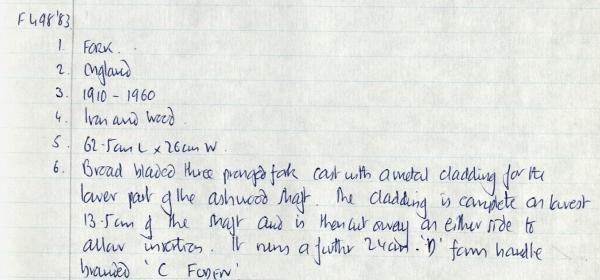 F498'83
1. FORK.
2. England
3. 1910 - 1960
4. Iron and wood.
5. 62.5cm L x 26cm W.
6. Broad bladed three pronged fork cast with a metal cladding for the
lower part of the ashwood shaft. The cladding is complete on lowest
13.5cm of the shaft and is then cut away on either side to
allow insertion. It runs a further 24cm. 'D' form handle
branded 'C FODEN'